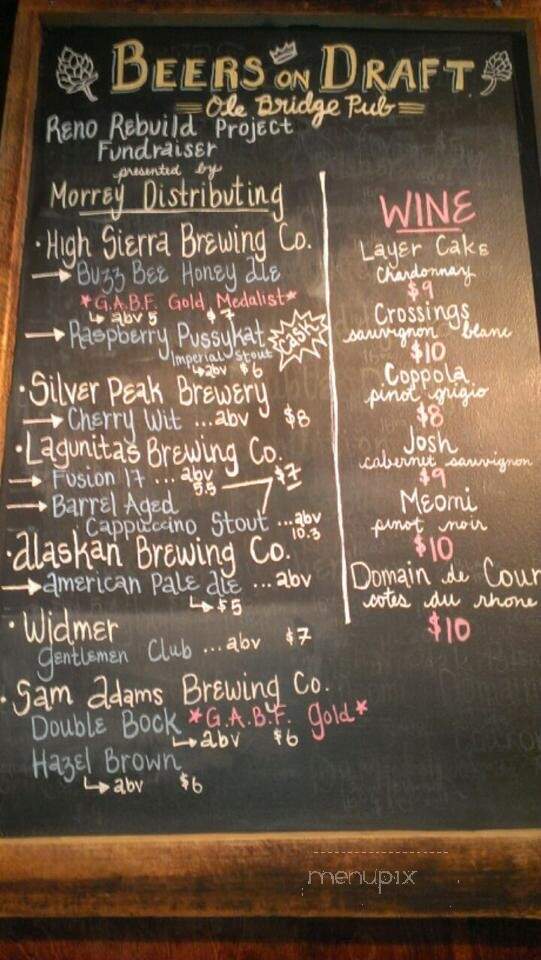 BEERS ON DRAFT
Ole Bridge Pub
RENO REBUILD PROJECT
FUNDRAISER
presented by
MORREY DISTRIBUTING
• HIGH SIERRA BREWING CO.
→ BUZZ BEE HONEY ALE
*G.A.B.F. GOLD MEDALIST*
↳ abv 5 $7
→ RASPBERRY PUSSYKAT CASK!
IMPERIAL STOUT
↳ abv $6
• SILVER PEAK BREWERY
→ CHERRY WIT ... abv $8
• LAGUNITAS BREWING CO.
→ FUSION 17 ... abv 5.5 $7
→ BARREL AGED
CAPPUCCINO STOUT ... abv 10.3
• ALASKAN BREWING CO.
→ AMERICAN PALE ALE ... abv
↳ $5
• WIDMER
GENTLEMEN CLUB ... abv $7
• SAM ADAMS BREWING CO.
DOUBLE BOCK *G.A.B.F. GOLD*
↳ abv $6
HAZEL BROWN
↳ abv $6
WINE
LAYER CAKE
chardonnay
$9
CROSSINGS
sauvignon blanc
$10
COPPOLA
pinot grigio
$8
JOSH
cabernet sauvignon
$9
MEOMI
pinot noir
$10
DOMAIN de COUR
cotes du rhone
$10
menupix